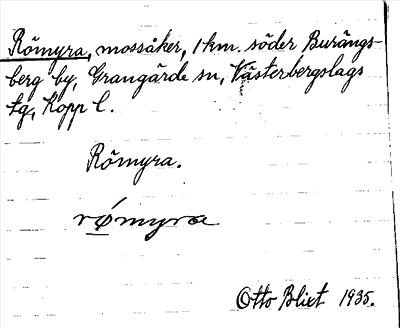 Römyra, mossåker, 1 km. söder Burängs-
berg by, Grangärde sn, Västerbergslags
tg, Kopp l.
Römyra.
römyra
Otto Blixt 1935.